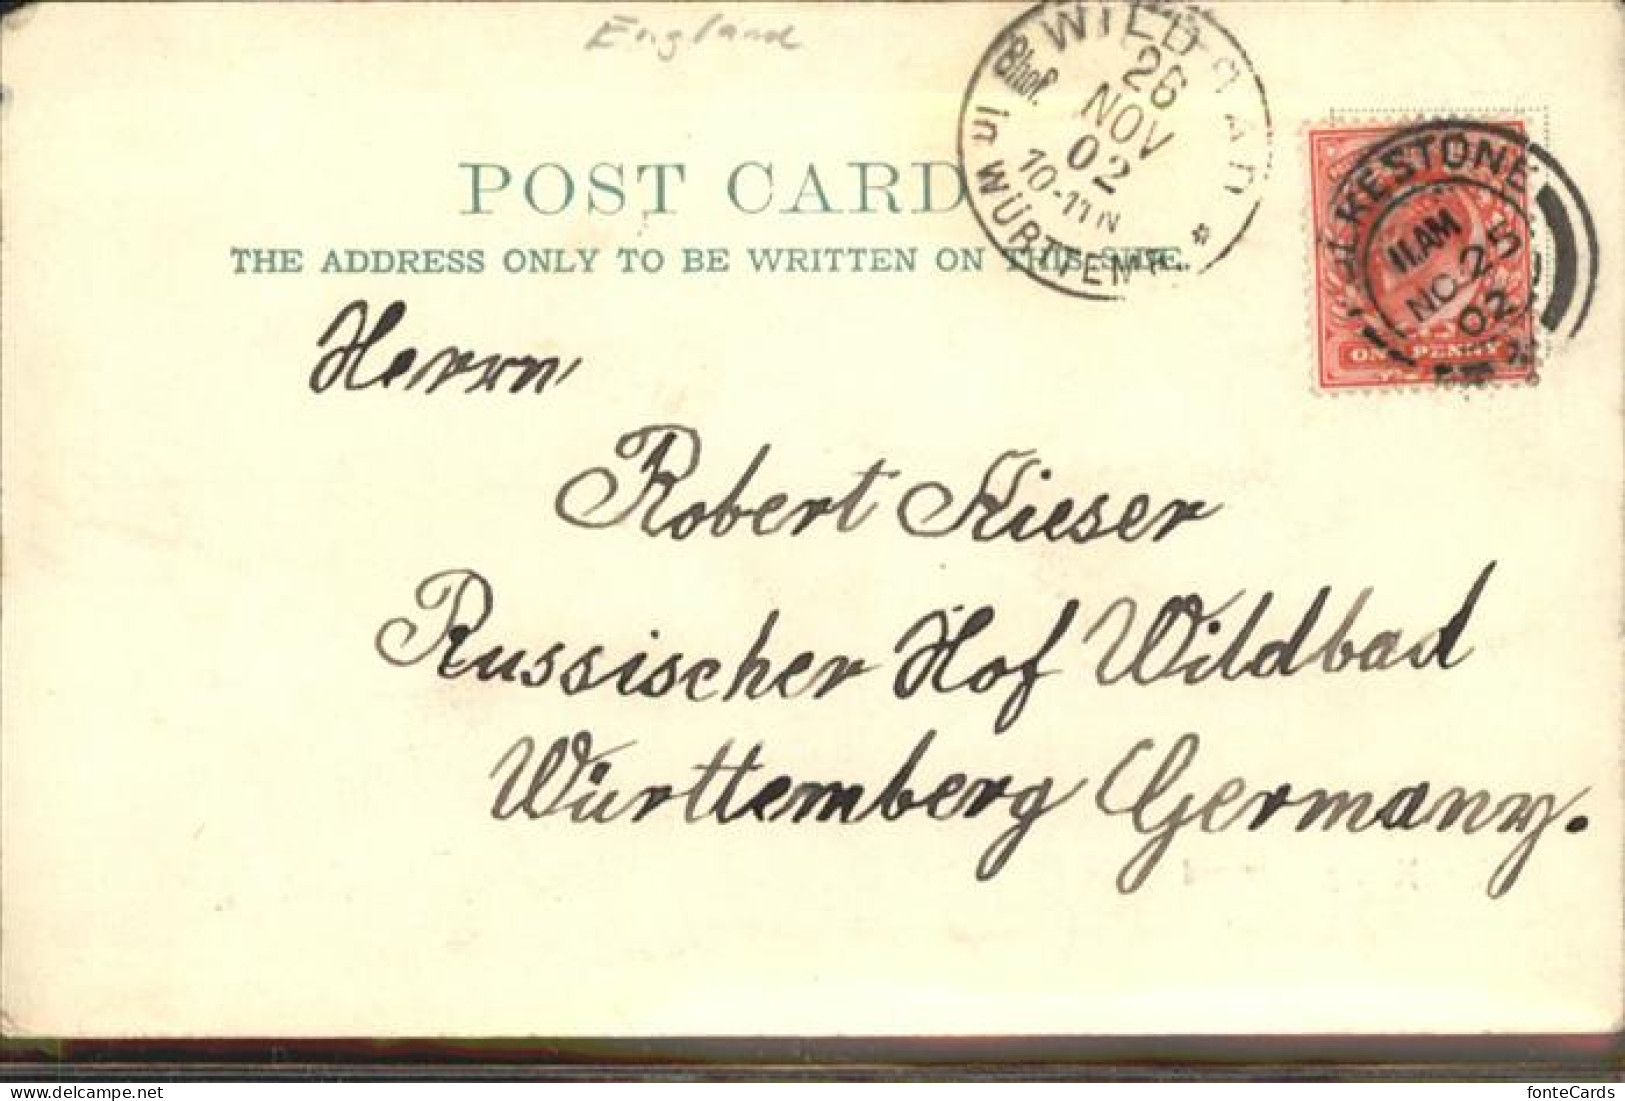 England
WILDBAD
Bhof.
26
NOV
02
10-11 N
in WÜRTTEMB.
POST CARD
THE ADDRESS ONLY TO BE WRITTEN ON THIS SIDE.
FOLKESTONE
11.AM
NO 25
02
ONE PENNY
Herrn
Robert Kieser
Russischer Hof Wildbad
Württemberg Germany.
www.delcampe.net
fonteCards